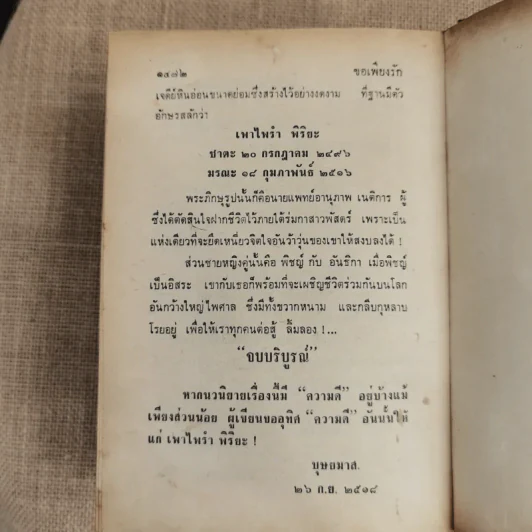 ๑๔๗๒ ขอเพียงรัก
เจดีย์หินอ่อนขนาดย่อมซึ่งสร้างไว้อย่างงดงาม ที่ฐานมีตัว
อักษรสลักว่า
เพาไพรำ พิริยะ
ชาตะ ๒๐ กรกฎาคม ๒๔๗๖
มรณะ ๑๘ กุมภาพันธ์ ๒๕๑๖
พระภิกษุรูปนั้นก็คือนายแพทย์อานุภาพ เนติการ ผู้
ซึ่งได้ตัดสินใจฝากชีวิตไว้ภายใต้ร่มกาสาวพัสตร์ เพราะเป็น
แห่งเดียวที่จะยึดเหนี่ยวจิตใจอันว้าวุ่นของเขาให้สงบลงได้ !
ส่วนชายหญิงคู่นั้นคือ พิชญ์ กับ อันธิกา เมื่อพิชญ์
เป็นอิสระ เขากับเธอก็พร้อมที่จะเผชิญชีวิตร่วมกันบนโลก
อันกว้างใหญ่ไพศาล ซึ่งมีทั้งขวากหนาม และกลีบกุหลาบ
โรยอยู่ เพื่อให้เราทุกคนต่อสู้ ลิ้มลอง !...
“จบบริบูรณ์”
หากนวนิยายเรื่องนี้มี “ความดี” อยู่บ้างแม้
เพียงส่วนน้อย ผู้เขียนขออุทิศ “ความดี” อันนั้นให้
แก่ เพาไพรำ พิริยะ !
บุษยมาส.
๒๖ ก.ย. ๒๕๑๘